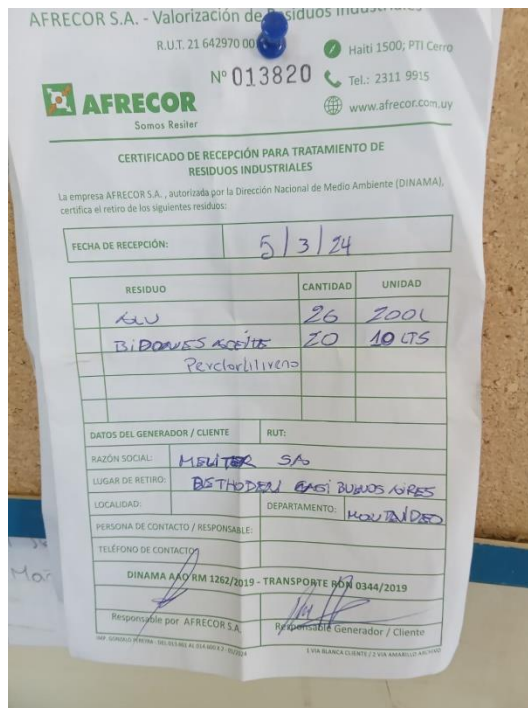 AFRECOR S.A. - Valorización de Residuos Industriales
R.U.T. 21 642970 00
Haití 1500; PTI Cerro
Nº 013820
Tel.: 2311 9915
AFRECOR
www.afrecor.com.uy
Somos Resiter
CERTIFICADO DE RECEPCIÓN PARA TRATAMIENTO DE
RESIDUOS INDUSTRIALES
La empresa AFRECOR S.A. , autorizada por la Dirección Nacional de Medio Ambiente (DINAMA),
certifica el retiro de los siguientes residuos:
FECHA DE RECEPCIÓN: 5/3/24
RESIDUO CANTIDAD UNIDAD
26 200L
BIDONES ACEITE 20 10 LTS
DATOS DEL GENERADOR / CLIENTE RUT:
RAZÓN SOCIAL: MELITER SA
LUGAR DE RETIRO: BUENOS AIRES
LOCALIDAD: DEPARTAMENTO: MONTEVIDEO
PERSONA DE CONTACTO / RESPONSABLE:
TELÉFONO DE CONTACTO:
DINAMA AAO RM 1262/2019 - TRANSPORTE RDN 0344/2019
Responsable por AFRECOR S.A.
Responsable Generador / Cliente
1 VIA BLANCA CLIENTE / 2 VIA AMARILLO ARCHIVO